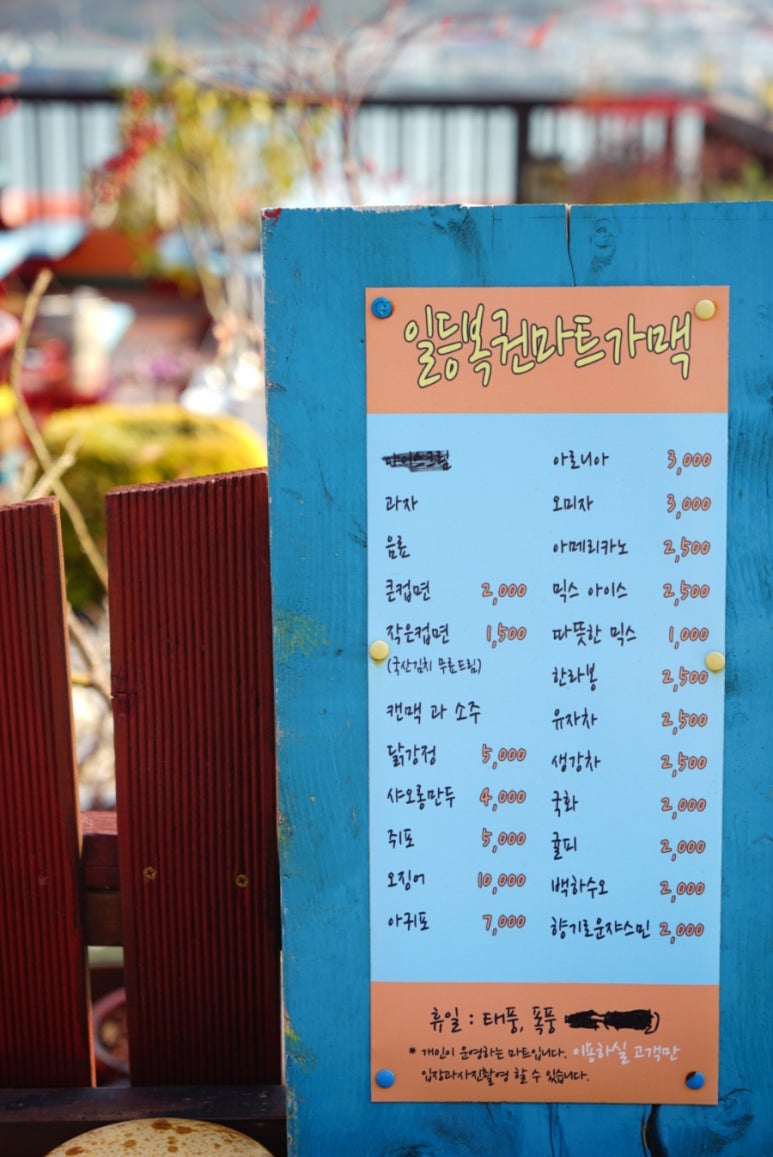 일등복권마트가맥
과자
음료
큰컵면 2,000
작은컵면 1,500
(국산김치 무료드림)
캔맥 과 소주
닭강정 5,000
샤오롱만두 4,000
쥐포 5,000
오징어 10,000
아귀포 7,000
아로니아 3,000
오미자 3,000
아메리카노 2,500
믹스 아이스 2,500
따뜻한 믹스 1,000
한라봉 2,500
유자차 2,500
생강차 2,500
국화 2,000
귤피 2,000
백하수오 2,000
향기로운쟈스민 2,000
휴일 : 태풍, 폭풍 )
* 개인이 운영하는 마트입니다. 이용하실 고객만
입장과사진촬영 할 수 있습니다.